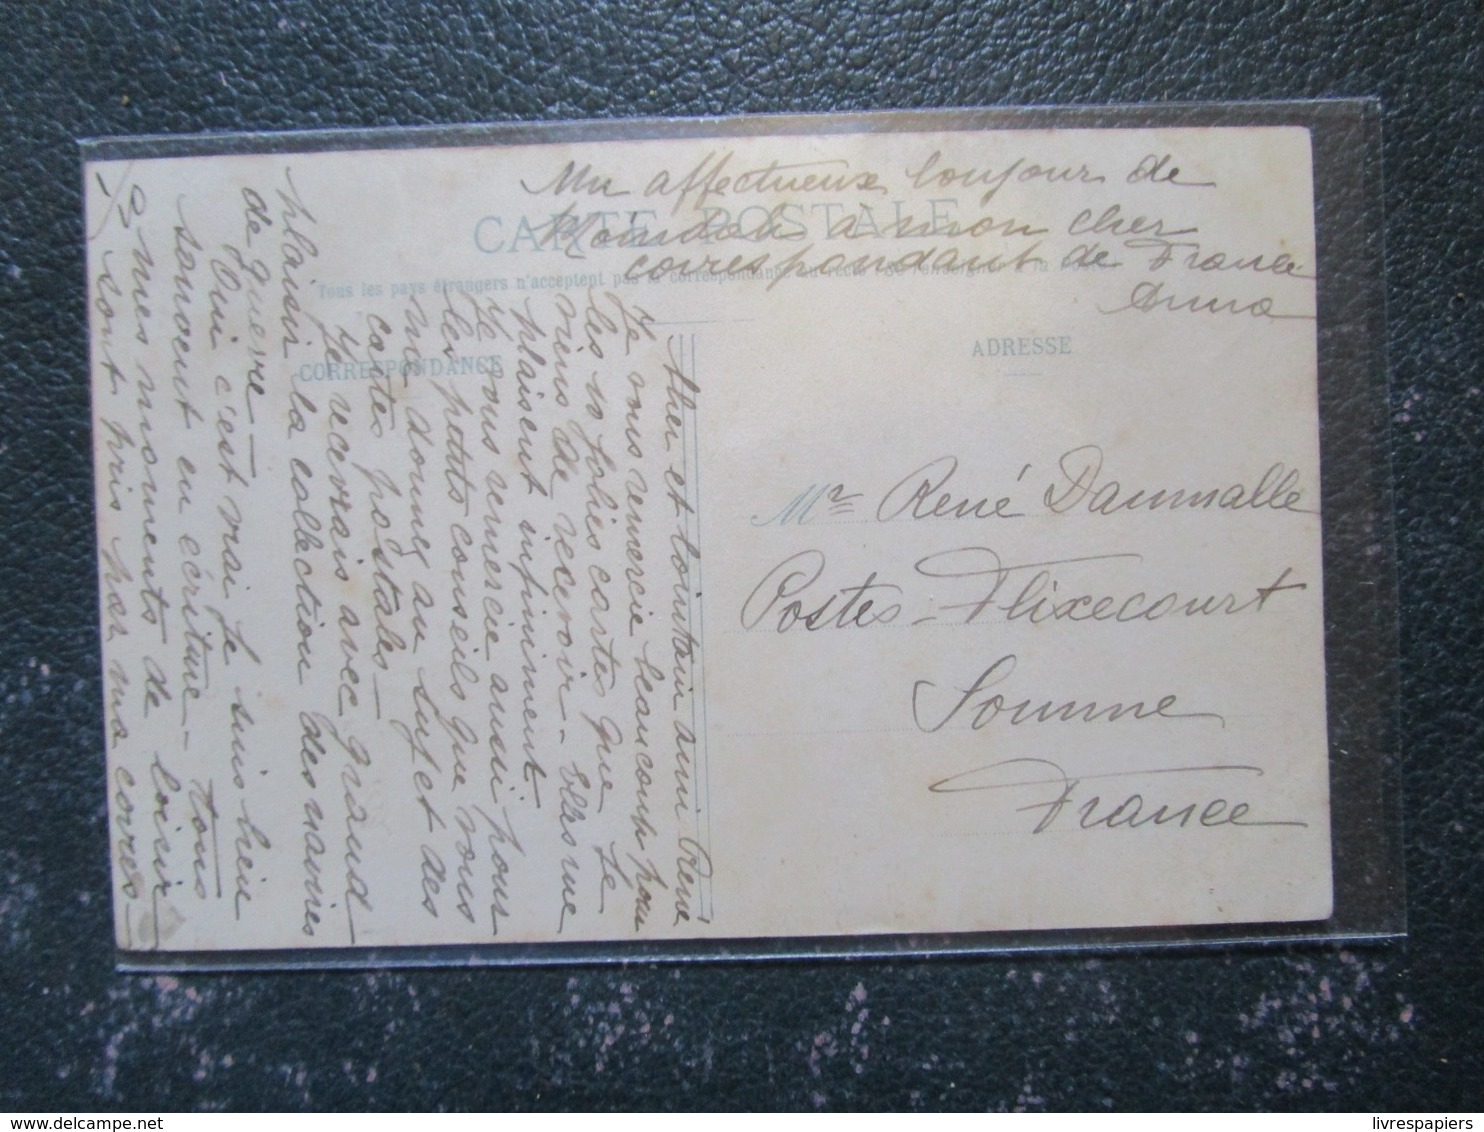 Un affectueux bonjour de
Moïndah à mon cher
correspondant de France
Anna
CARTE POSTALE
Tous les pays étrangers n'acceptent pas la correspondance au recto
CORRESPONDANCE
ADRESSE
Mr René Daumalle
Postes - Flixecourt
Somme
France
Cher et lointain ami René
Je vous remercie beaucoup pour
les 10 jolies cartes que je
viens de recevoir - Elles me
plaisent infiniment.
Je vous remercie aussi pour
les petits conseils que vous
me donnez au sujet des
cartes postales -
Je recevrais avec grand
plaisir la collection des navires
de guerre -
Oui c'est vrai je suis bien
souvent en écriture - Tous
mes moments de loisir
sont pris par ma corres-
livrespapiers